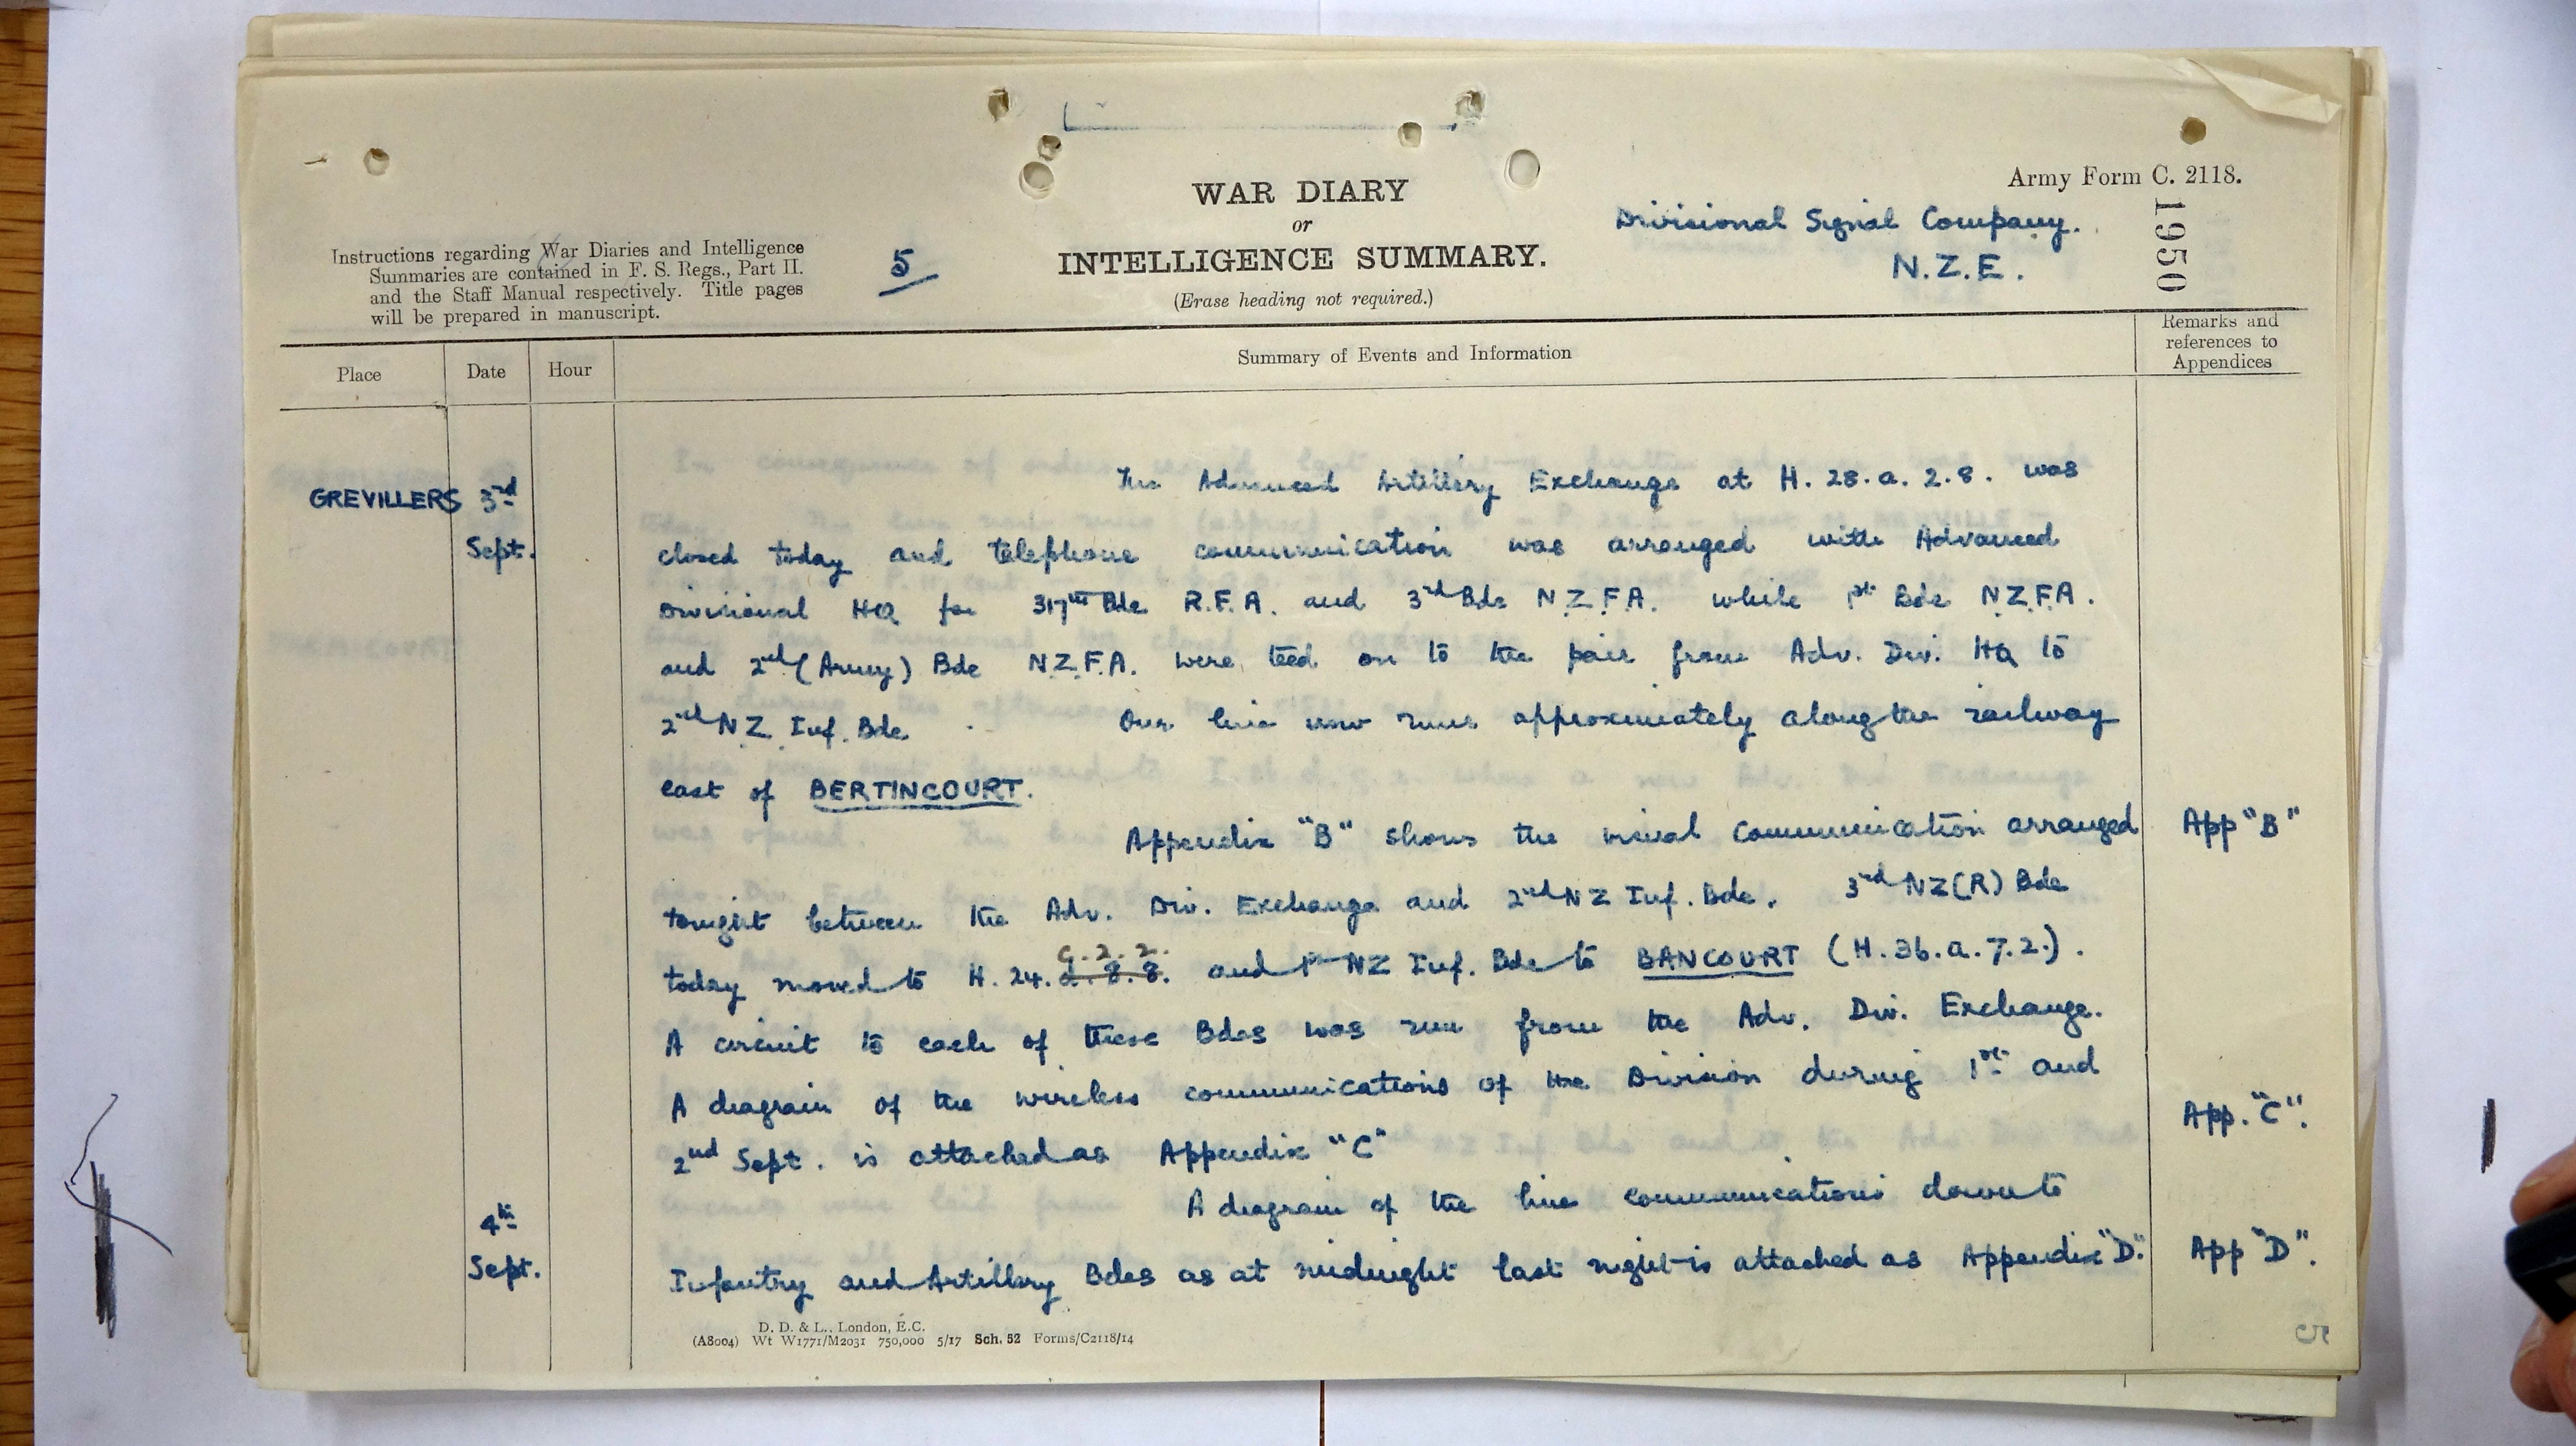 Army Form C. 2118.
1950
WAR DIARY
or
INTELLIGENCE SUMMARY.
(Erase heading not required.)
Instructions regarding War Diaries and Intelligence
Summaries are contained in F. S. Regs., Part II.
and the Staff Manual respectively. Title pages
will be prepared in manuscript.
5
Divisional Signal Company.
N.Z.E.
Place
Date
Hour
Summary of Events and Information
Remarks and
references to
Appendices
GREVILLERS 3rd
Sept.
The Advanced Artillery Exchange at H. 28. a. 2. 8. was
closed today and telephone communication was arranged with Advanced
Divisional HQ for 317th Bde R.F.A. and 3rd Bde N.Z.F.A. while 1st Bde N.Z.F.A.
and 2nd (Army) Bde N.Z.F.A. were teed on to the pair from Adv. Div. HQ to
2nd N.Z. Inf. Bde. Our line now runs approximately along the railway
east of BERTINCOURT.
Appendix "B" shows the visual communication arranged App "B"
tonight between the Adv. Div. Exchange and 2nd NZ Inf. Bde. 3rd NZ(R) Bde
today moved to H. 24. d. 8. 8. c. 2. 2. and 1st NZ Inf. Bde to BANCOURT (H. 36. a. 7. 2.).
A circuit to each of these Bdes was run from the Adv. Div. Exchange.
A diagram of the wireless communications of the Division during 1st and
2nd Sept. is attached as Appendix "C" App. "C".
4th
Sept.
A diagram of the line communications down to
Infantry and Artillery Bdes as at midnight last night is attached as Appendix "D". App "D".
D. D. & L., London, E.C.
(A8004) Wt W1771/M2031 750,000 5/17 Sch. 52 Forms/C2118/14